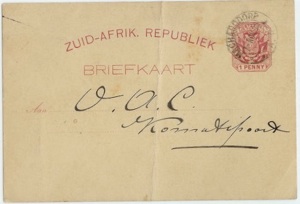 ZUID-AFRIK. REPUBLIEK
BRIEFKAART
1 PENNY
Aan
O. A. C.
Komatipoort